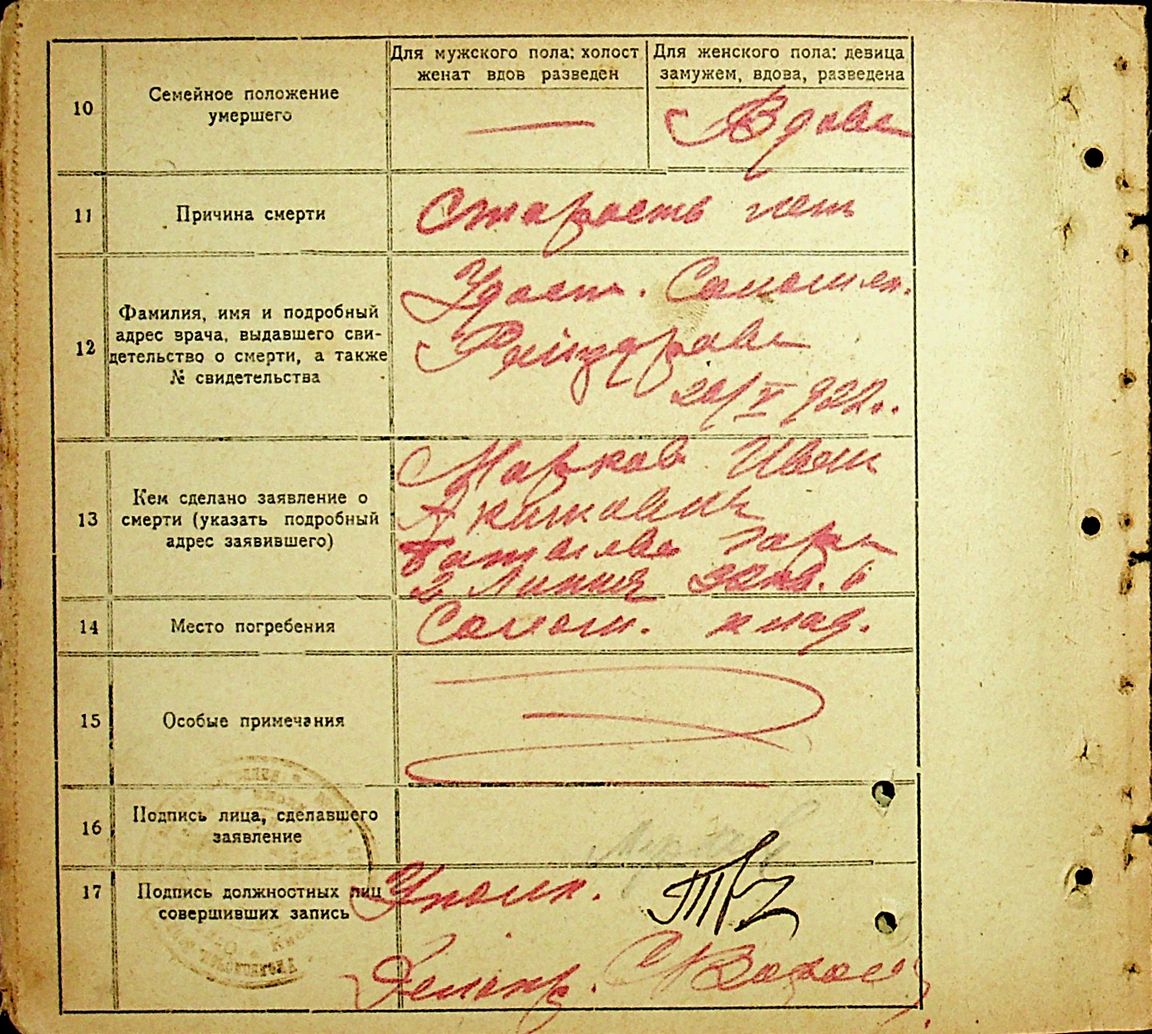 Для мужского пола: холост
женат вдов разведен
Для женского пола: девица
замужем, вдова, разведена
10
Семейное положение
умершего
—
Вдова
11
Причина смерти
Старость лет
12
Фамилия, имя и подробный
адрес врача, выдавшего сви-
детельство о смерти, а также
№ свидетельства
Удост.
20/V 922г.
13
Кем сделано заявление о
смерти (указать подробный
адрес заявившего)
Марков Иван
Акимович
Батыева гора
2 Линия
14
Место погребения
клад.
15
Особые примечания
16
Подпись лица, сделавшего
заявление
17
Подпись должностных лиц
совершивших запись
Уполн.
Делопр.